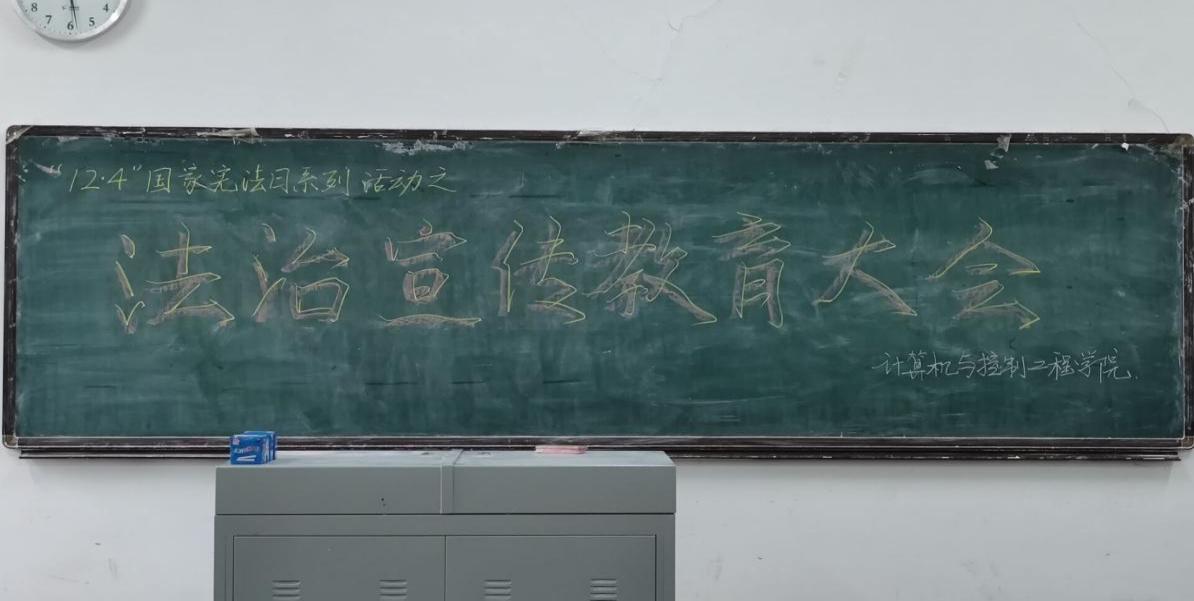 8 7 6 5 4
“12·4”国家宪法日系列活动之
法治宣传教育大会
计算机与控制工程学院.